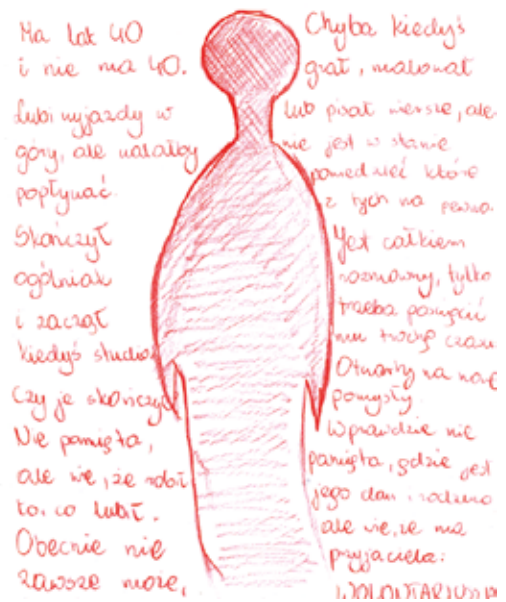 Ma lat 40
i nie ma 40.
Lubi wyjazdy w
góry, ale wolałby
popłynąć.
Skończył
ogólniak
i zaczął
kiedyś studia
Czy je skończył
Nie pamięta,
ale wie, że robił
to, co lubił.
Obecnie nie
zawsze może,
Chyba kiedyś
grał, malował
lub pisał wiersze, ale
nie jest w stanie
powiedzieć które
z tych na pewno.
Jest całkiem
rozmowny, tylko
trzeba poświęcić
mu trochę czasu
Otwarty na
pomysły.
Wprawdzie nie
pamięta, gdzie jest
jego dom, rodzina
ale wie, że ma
przyjaciela: